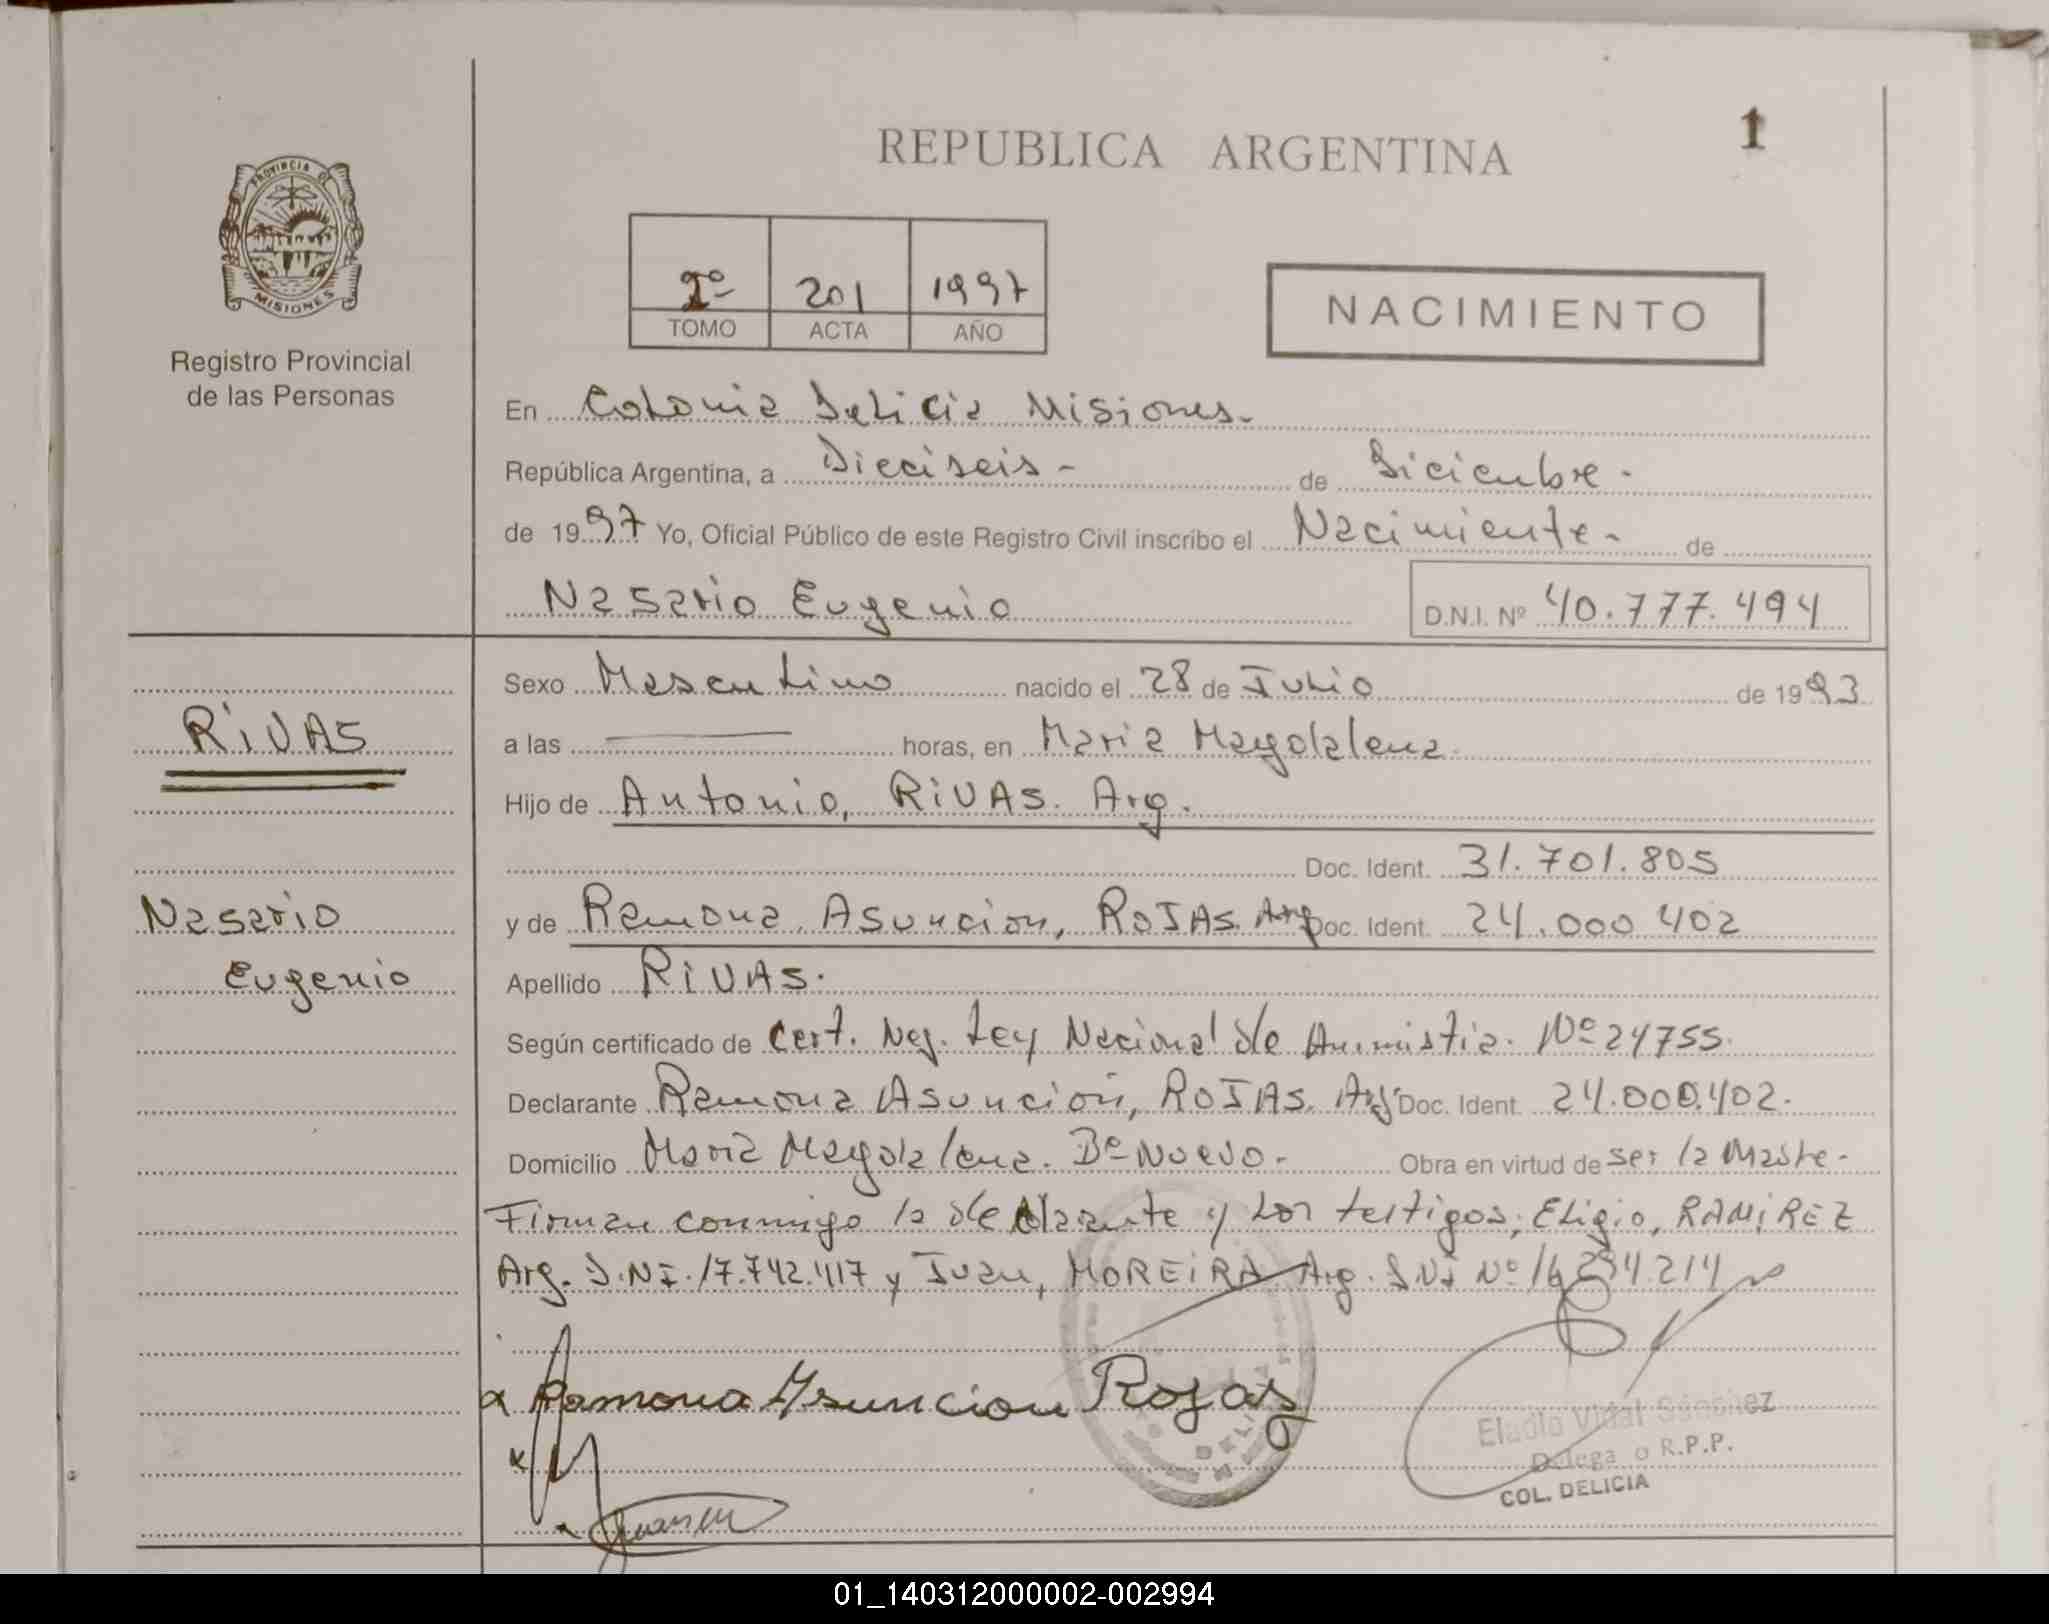 1
REPUBLICA ARGENTINA
PROVINCIA DE
MISIONES
Registro Provincial
de las Personas
2º 201 1997
TOMO ACTA AÑO
NACIMIENTO
En Colonia Delicia Misiones.
República Argentina, a Dieciseis - de Diciembre.
de 1997 Yo, Oficial Público de este Registro Civil inscribo el Nacimiento. de
Nasario Eugenio D.N.I. Nº 40.777.494
Sexo Masculino nacido el 28 de Julio de 1993
a las horas, en Maria Magdalena.
Hijo de Antonio, RIVAS. Arg.
Doc. Ident. 31.701.805
y de Ramona Asuncion, ROJAS. Arg Doc. Ident. 24.000 402
Apellido RIVAS.
Según certificado de Cert. Neg. Ley Nacional de Ammistia. Nº 24755.
Declarante Ramona Asuncion, ROJAS. Arg Doc. Ident. 24.000.402.
Domicilio Maria Magdalena. Bº Nuevo. Obra en virtud de ser la Madre.
Firman conmigo la declarante y los testigos; Eligio, RAMIREZ
Arg. D.N.I. 17.742.417 y Juan, MOREIRA Arg. D.N.I Nº 214
RIVAS
Nasario
Eugenio
Ramona Asuncion Rojas
Eladio Vidal Sánchez
Delegado R.P.P.
COL. DELICIA
01_140312000002-002994